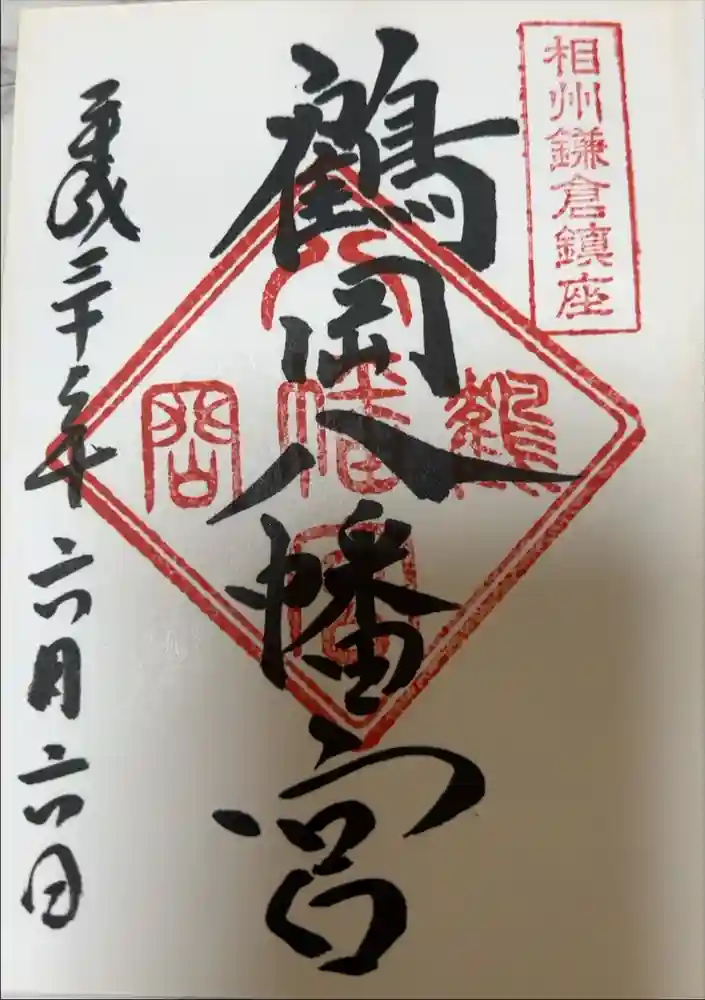 相州鎌倉鎮座
鶴岡八幡宮
鶴
八幡宮
岡
平成 十 年六月六日